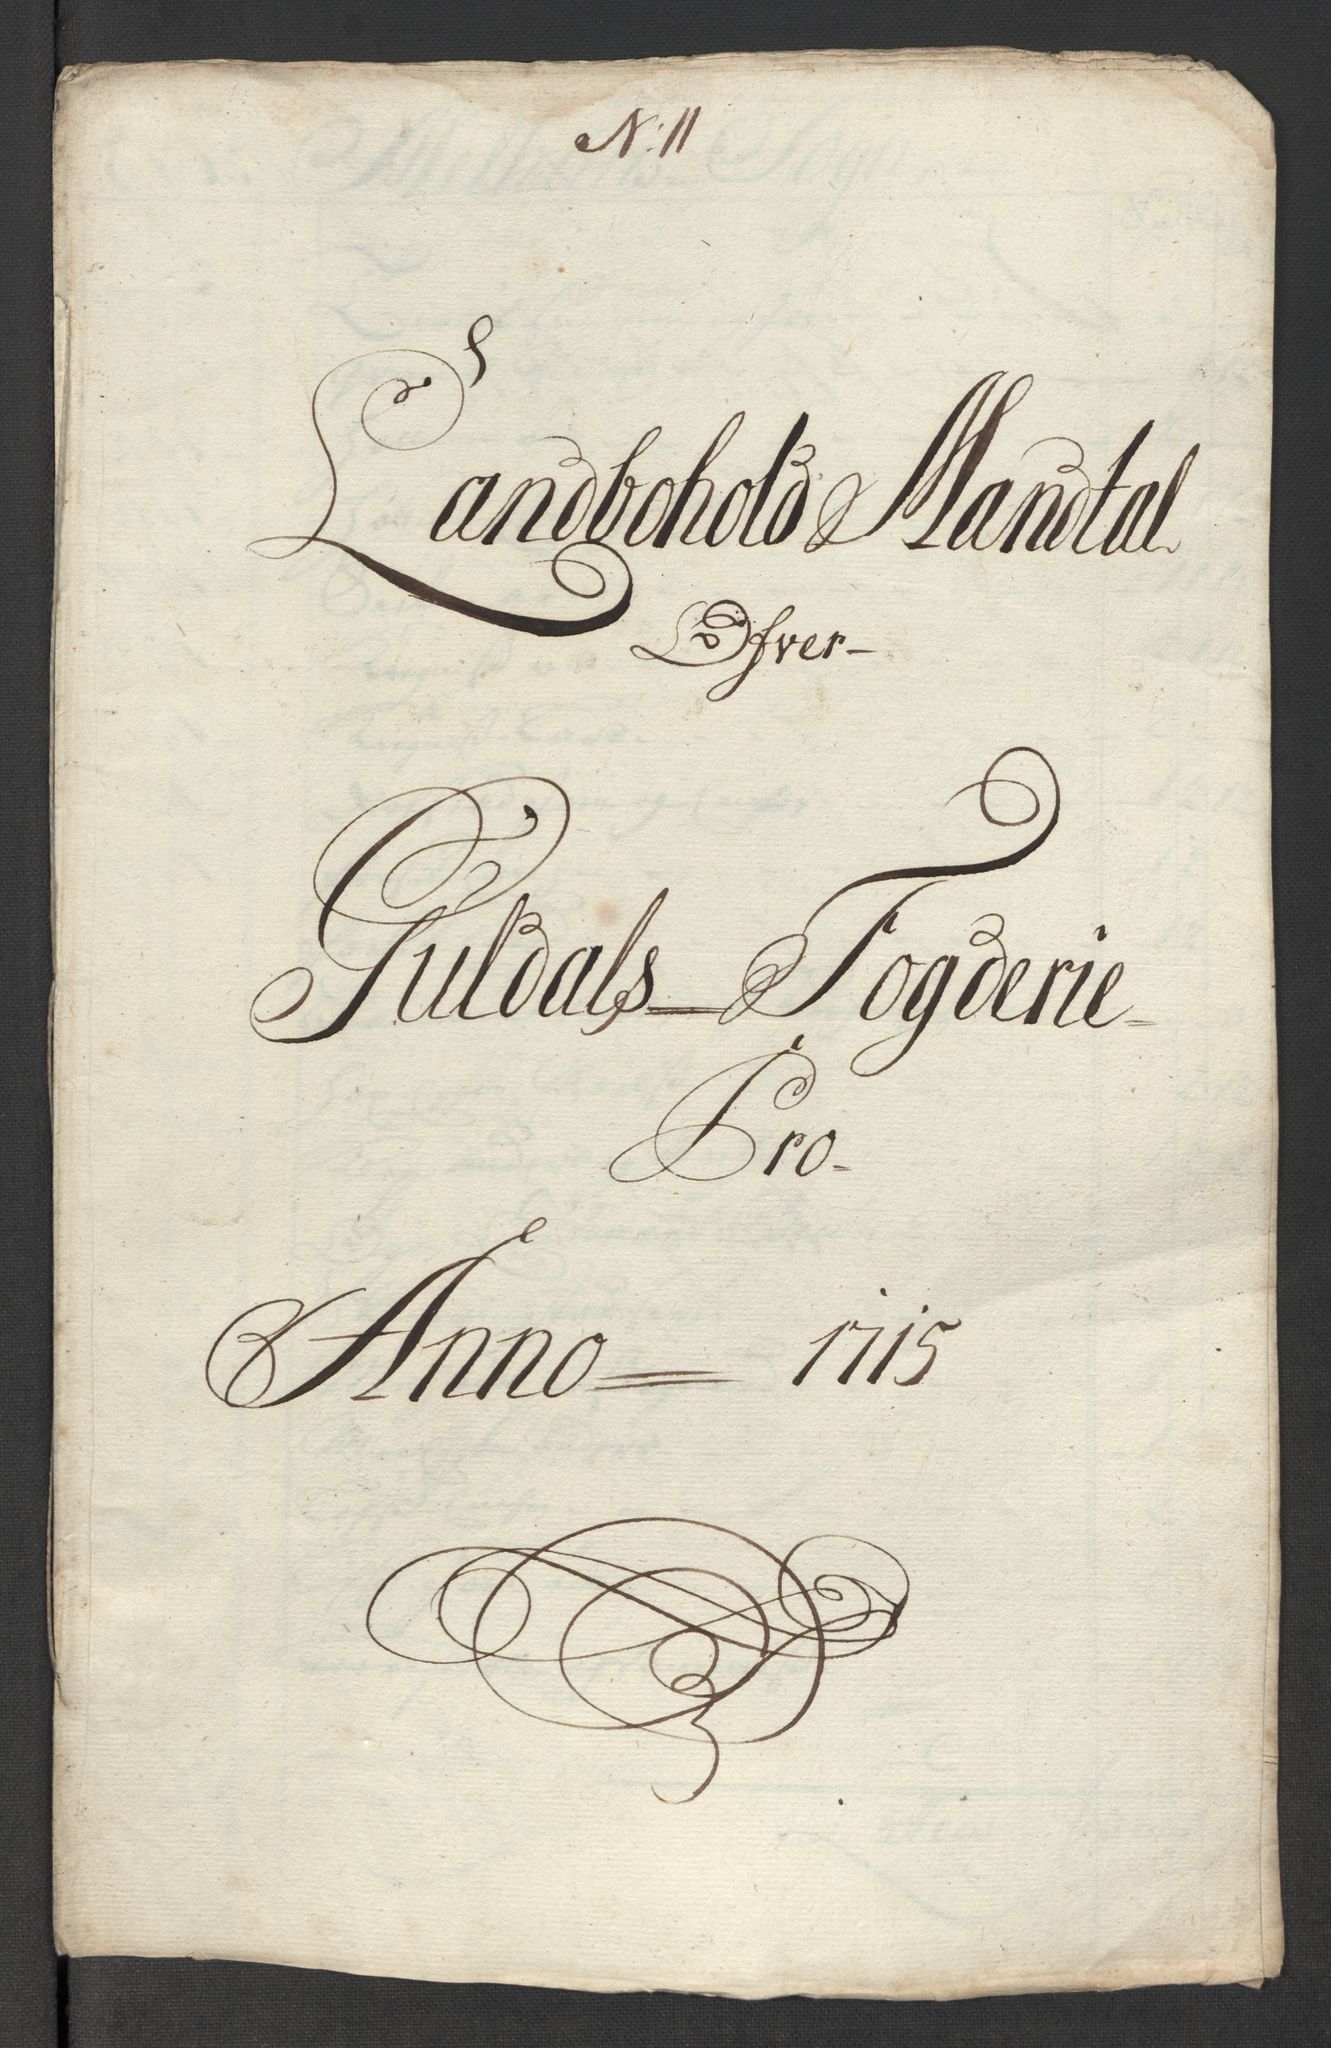 N: 11
Landbohold Mandtal
Ofver-
Guldals Fogderie-
Pro-
Anno= 1715